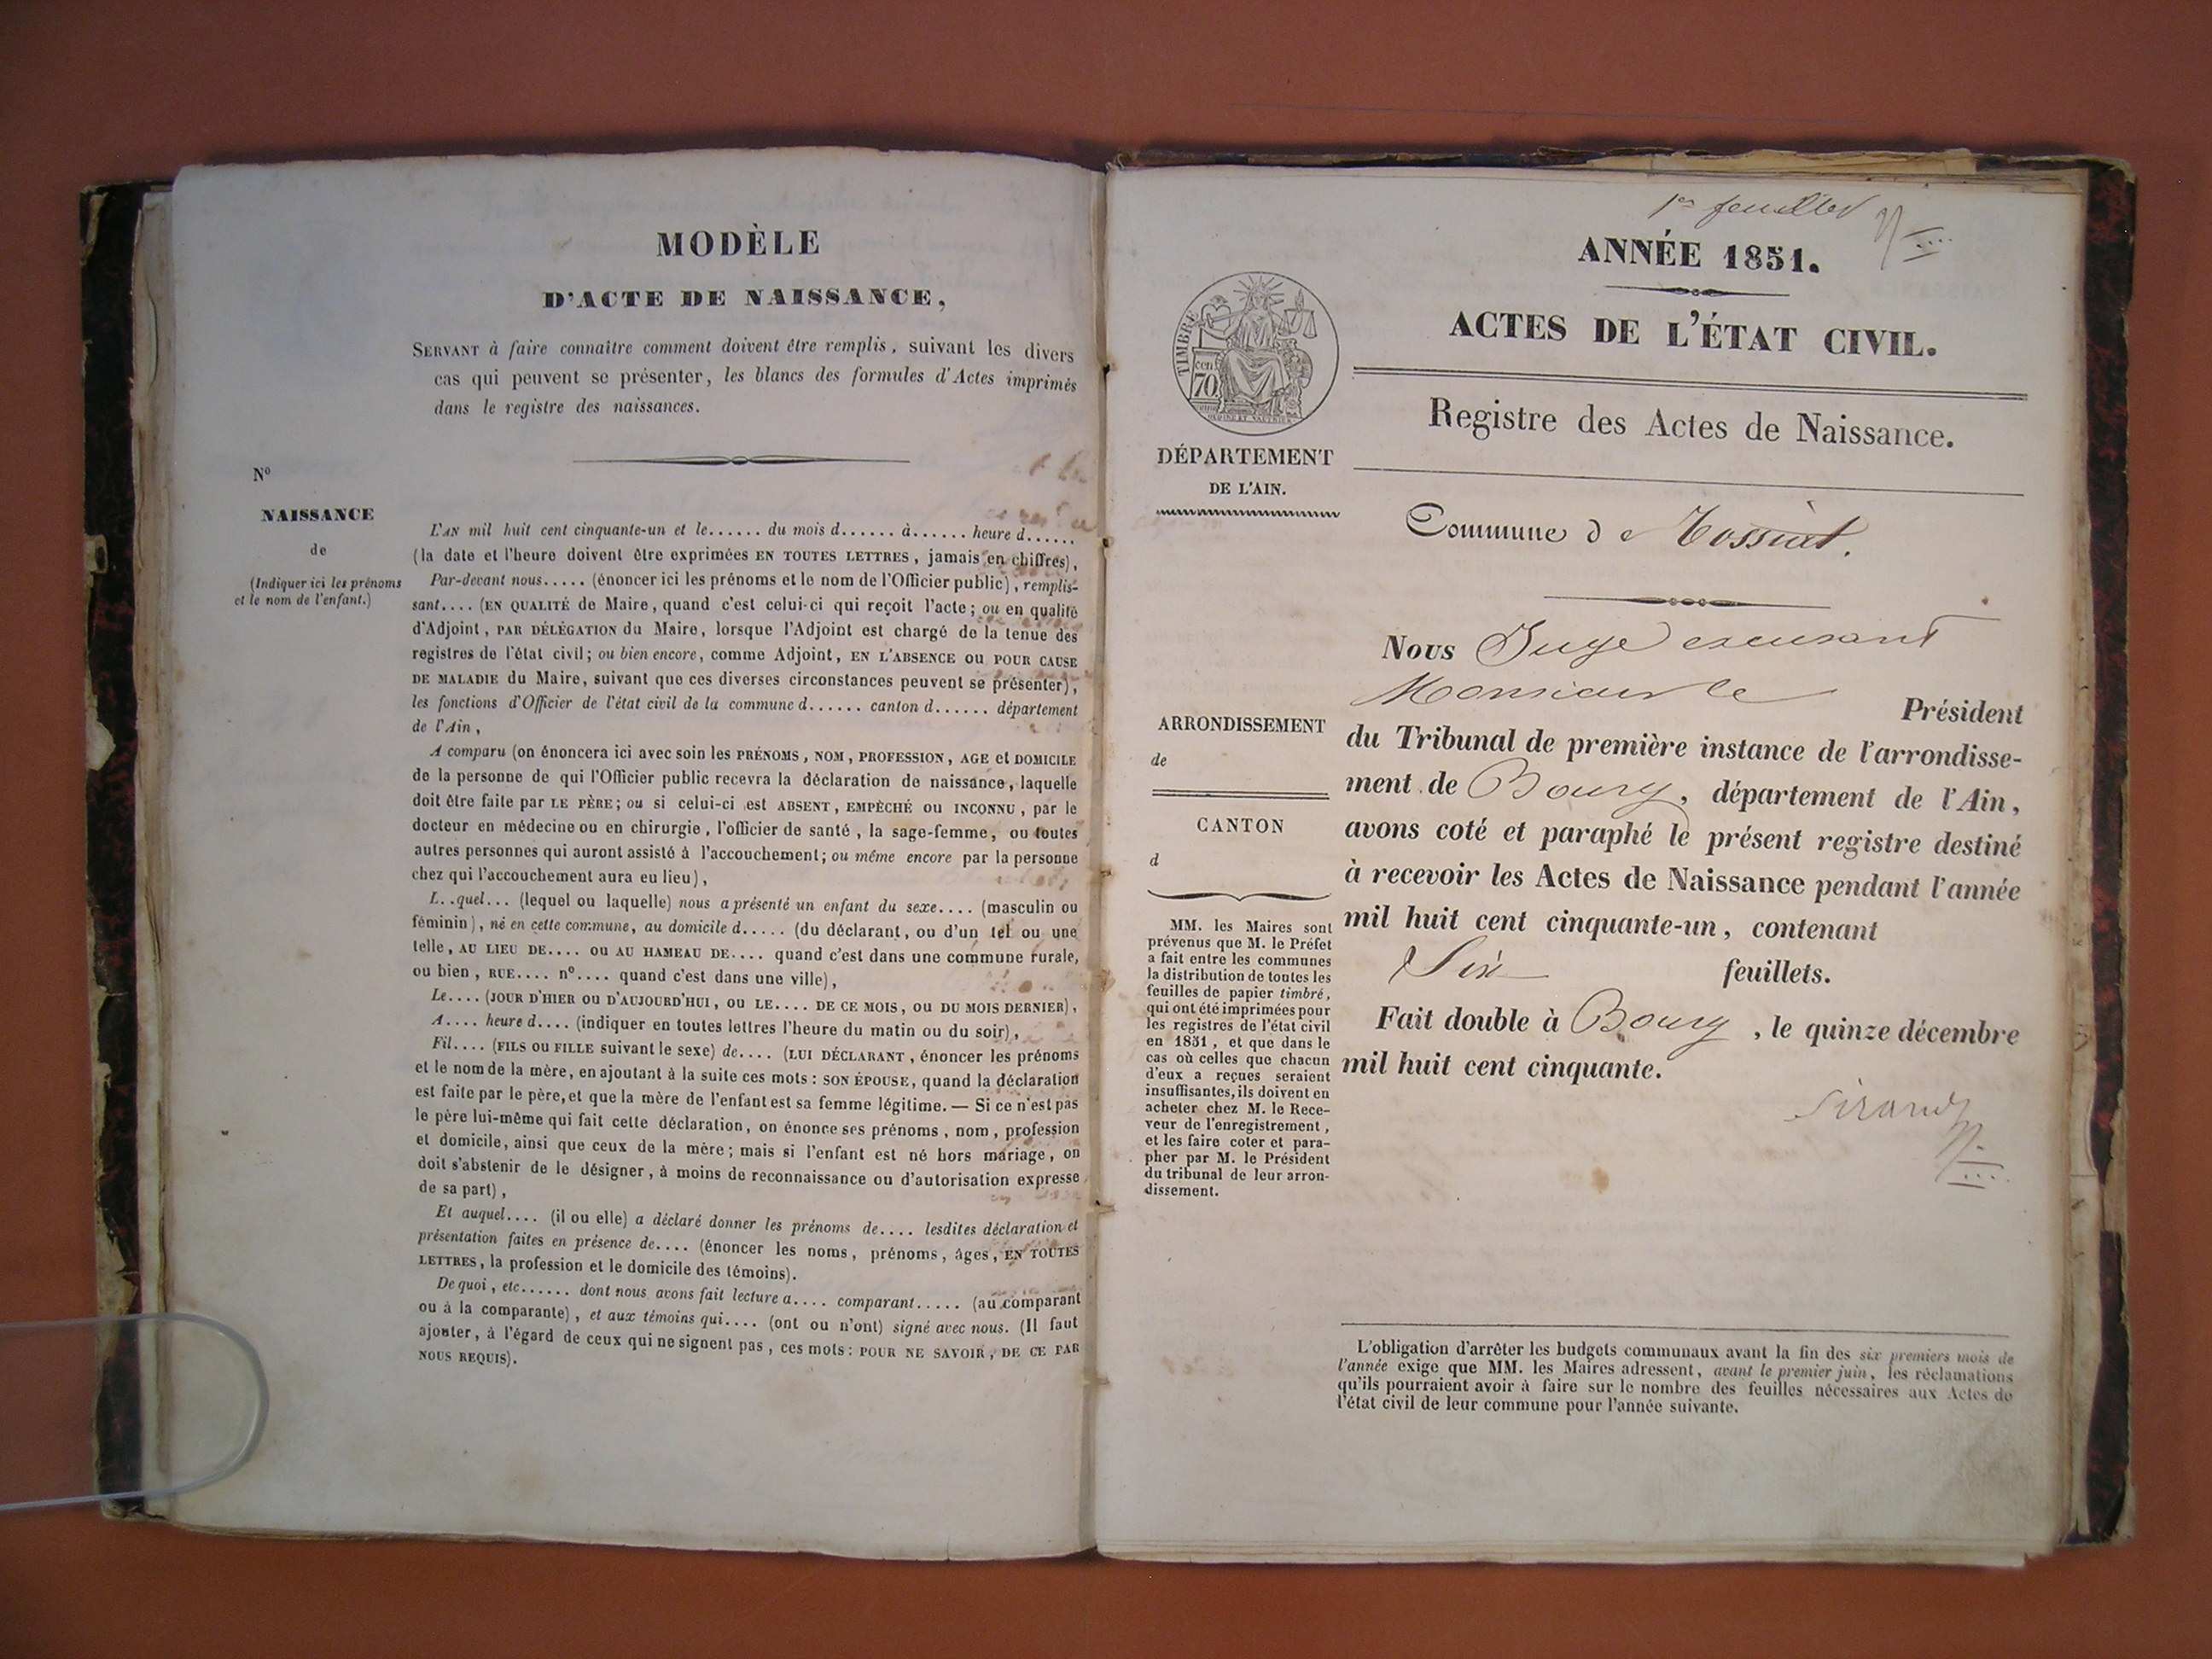 MODÈLE
D'ACTE DE NAISSANCE,
SERVANT à faire connaître comment doivent être remplis, suivant les divers
cas qui peuvent se présenter, les blancs des formules d'Actes imprimés
dans le registre des naissances.
N°
NAISSANCE
de
(Indiquer ici les prénoms
et le nom de l'enfant.)
L'AN mil huit cent cinquante-un et le...... du mois d...... à...... heure d......
(la date et l'heure doivent être exprimées EN TOUTES LETTRES, jamais en chiffres),
Par-devant nous..... (énoncer ici les prénoms et le nom de l'Officier public), remplis-
sant.... (EN QUALITÉ de Maire, quand c'est celui-ci qui reçoit l'acte; ou en qualité
d'Adjoint, PAR DÉLÉGATION du Maire, lorsque l'Adjoint est chargé de la tenue des
registres de l'état civil; ou bien encore, comme Adjoint, EN L'ABSENCE OU POUR CAUSE
DE MALADIE du Maire, suivant que ces diverses circonstances peuvent se présenter),
les fonctions d'Officier de l'état civil de la commune d...... canton d...... département
de l'Ain,
A comparu (on énoncera ici avec soin les PRÉNOMS, NOM, PROFESSION, AGE et DOMICILE
de la personne de qui l'Officier public recevra la déclaration de naissance, laquelle
doit être faite par LE PÈRE; ou si celui-ci est ABSENT, EMPÊCHÉ OU INCONNU, par le
docteur en médecine ou en chirurgie, l'officier de santé, la sage-femme, ou toutes
autres personnes qui auront assisté à l'accouchement; ou même encore par la personne
chez qui l'accouchement aura eu lieu),
L..quel... (lequel ou laquelle) nous a présenté un enfant du sexe.... (masculin ou
féminin), né en cette commune, au domicile d..... (du déclarant, ou d'un tel ou une
telle, AU LIEU DE.... OU AU HAMEAU DE.... quand c'est dans une commune rurale,
ou bien, RUE.... n°.... quand c'est dans une ville),
Le.... (JOUR D'HIER OU D'AUJOURD'HUI, OU LE.... DE CE MOIS, OU DU MOIS DERNIER),
A.... heure d.... (indiquer en toutes lettres l'heure du matin ou du soir),
Fil.... (FILS OU FILLE suivant le sexe) de.... (LUI DÉCLARANT, énoncer les prénoms
et le nom de la mère, en ajoutant à la suite ces mots: SON ÉPOUSE, quand la déclaration
est faite par le père, et que la mère de l'enfant est sa femme légitime. — Si ce n'est pas
le père lui-même qui fait cette déclaration, on énonce ses prénoms, nom, profession
et domicile, ainsi que ceux de la mère; mais si l'enfant est né hors mariage, on
doit s'abstenir de le désigner, à moins de reconnaissance ou d'autorisation expresse
de sa part),
Et auquel.... (il ou elle) a déclaré donner les prénoms de.... lesdites déclaration et
présentation faites en présence de.... (énoncer les noms, prénoms, âges, EN TOUTES
LETTRES, la profession et le domicile des témoins).
De quoi, etc...... dont nous avons fait lecture a.... comparant..... (au comparant
ou à la comparante), et aux témoins qui.... (ont ou n'ont) signé avec nous. (Il faut
ajouter, à l'égard de ceux qui ne signent pas, ces mots: POUR NE SAVOIR, DE CE PAR
NOUS REQUIS).
1er feuillet
ANNÉE 1851.
ACTES DE L'ÉTAT CIVIL.
TIMBRE
cen.
70
DÉPARTEMENT
DE L'AIN.
Registre des Actes de Naissance.
Commune de Tossiat.
Nous Juge excusant
Monsieur le Président
du Tribunal de première instance de l'arrondisse-
ment de Bourg, département de l'Ain,
avons coté et paraphé le présent registre destiné
à recevoir les Actes de Naissance pendant l'année
mil huit cent cinquante-un, contenant
Six feuillets.
Fait double à Bourg, le quinze décembre
mil huit cent cinquante.
Sirand
ARRONDISSEMENT
de
CANTON
d
MM. les Maires sont
prévenus que M. le Préfet
a fait entre les communes
la distribution de toutes les
feuilles de papier timbré,
qui ont été imprimées pour
les registres de l'état civil
en 1851, et que dans le
cas où celles que chacun
d'eux a reçues seraient
insuffisantes, ils doivent en
acheter chez M. le Rece-
veur de l'enregistrement,
et les faire coter et para-
pher par M. le Président
du tribunal de leur arron-
dissement.
L'obligation d'arrêter les budgets communaux avant la fin des six premiers mois de
l'année exige que MM. les Maires adressent, avant le premier juin, les réclamations
qu'ils pourraient avoir à faire sur le nombre des feuilles nécessaires aux Actes de
l'état civil de leur commune pour l'année suivante.